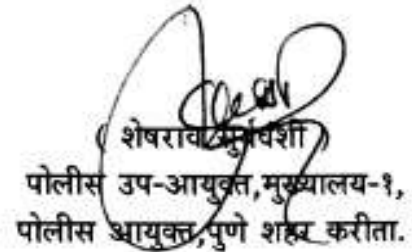 ( शेषराव सुर्यवंशी )
पोलीस उप-आयुक्त,मुख्यालय-१,
पोलीस आयुक्त,पुणे शहर करीता.